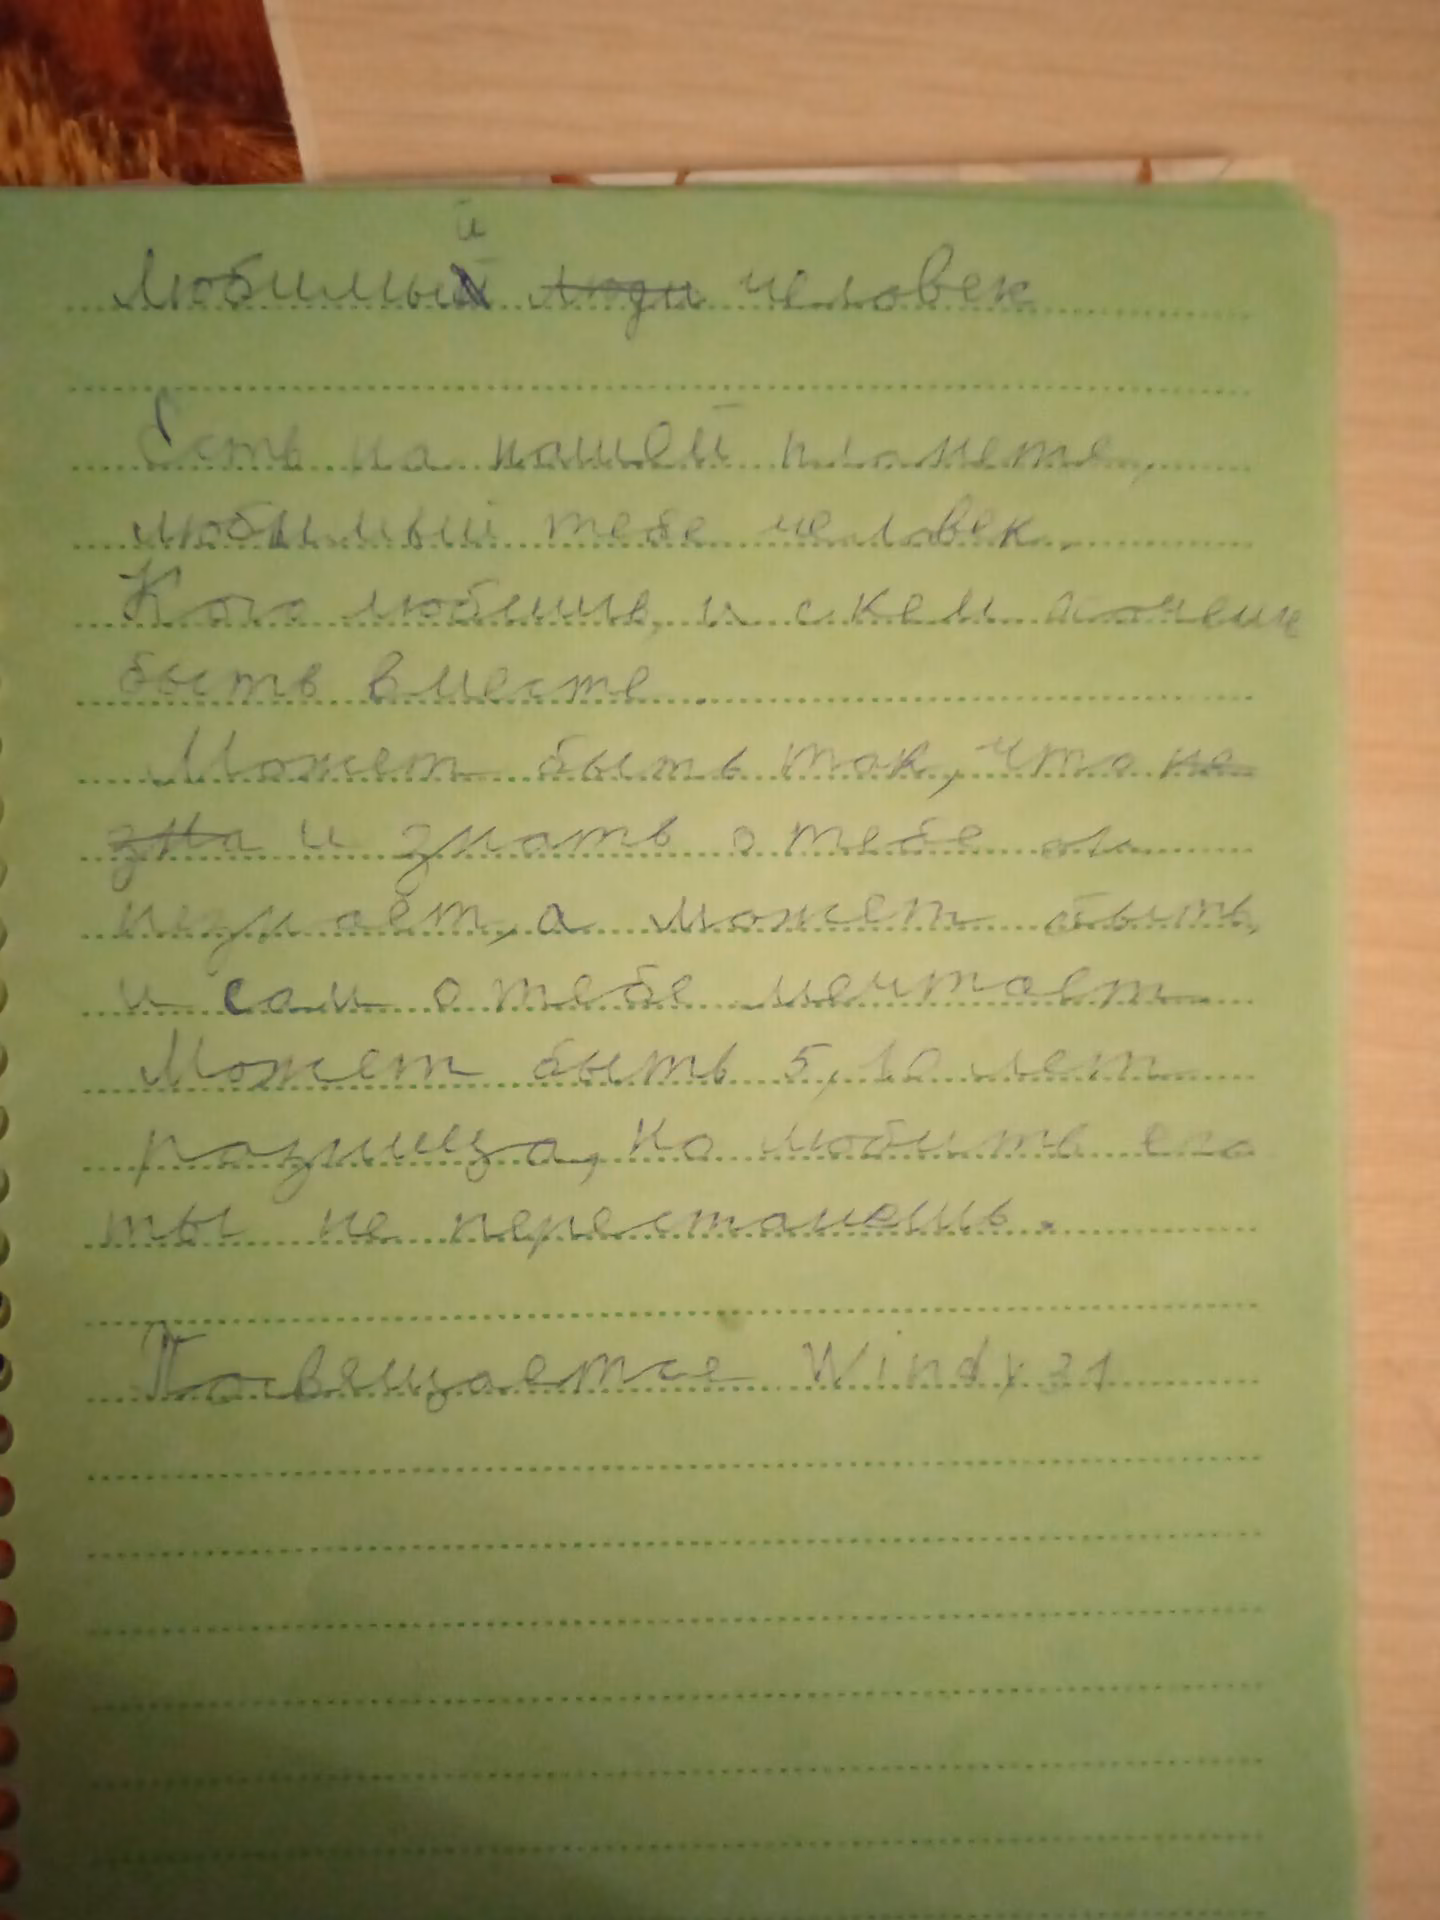 Любимый люди человек
Есть на нашей планете,
любимый тебе человек.
Кого любишь, и с кем хочешь
быть вместе.
Может быть так, что не
зна и знать о тебе он
незнает, а может быть,
и сам о тебе мечтает
Может быть 5, 10 лет
разница, но любить его
ты не перестанешь.
Посвещается Windy31